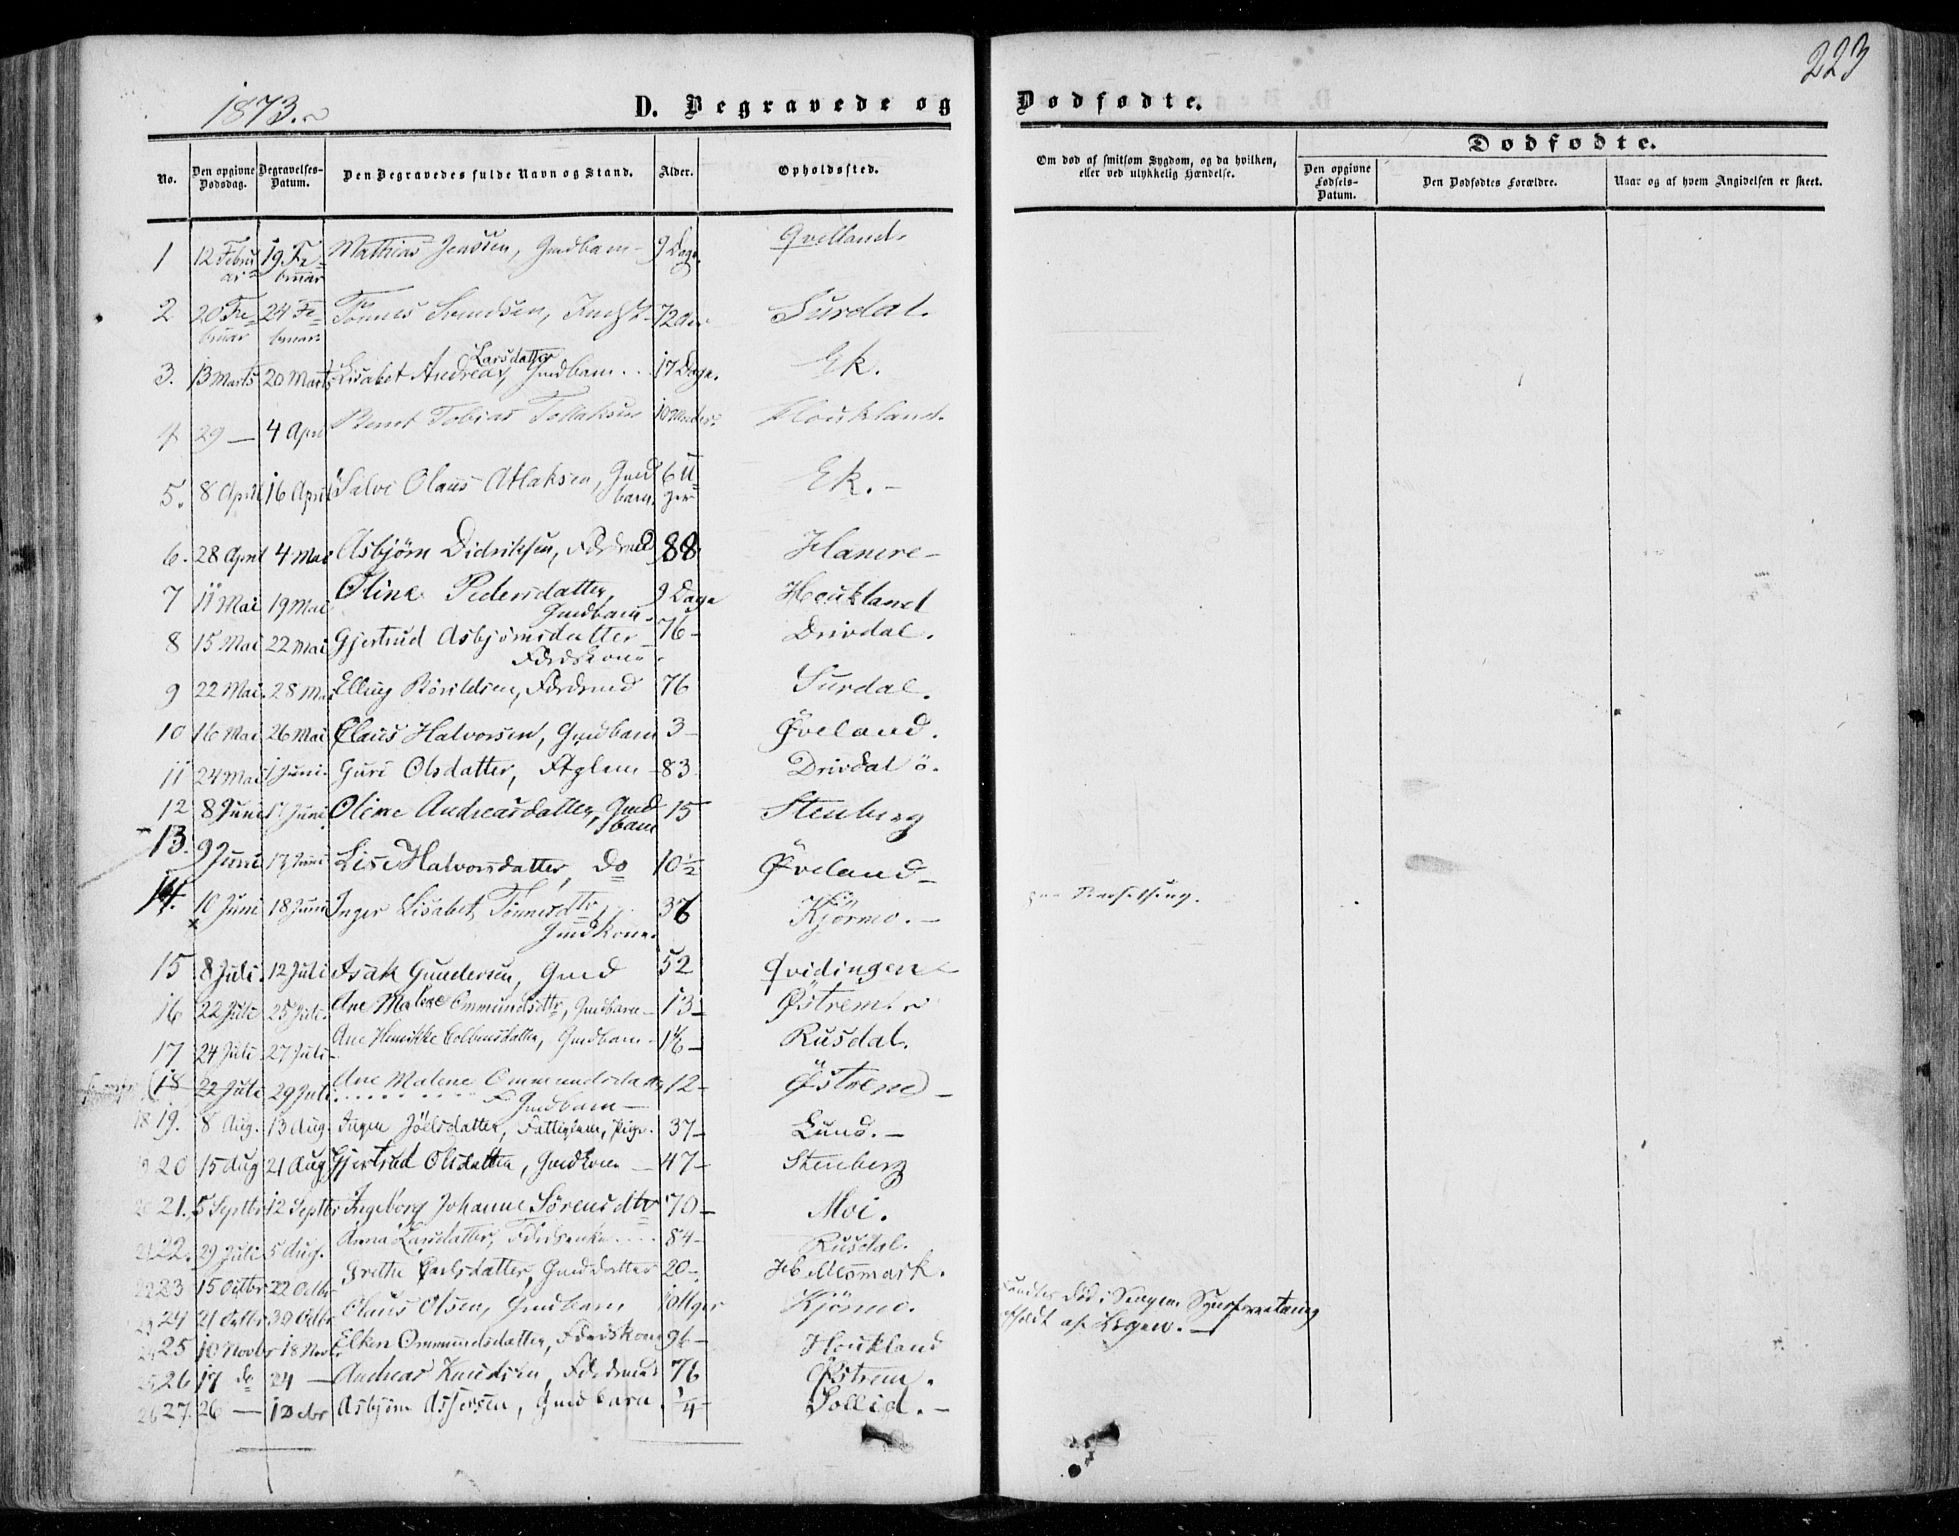 223
1873.
D. Begravede og Dødfødte.
No.
Den opgivne Dødsdag.
Begravelses-Datum.
Den Begravedes fulde Navn og Stand.
Alder.
Opholdssted.
Om død af smitsom Sygdom, og da hvilken, eller ved ulykkelig Hændelse.
Dødfødte.
Den opgivne Fødsels-Datum.
Den Dødfødtes Forældre.
Naar og af hvem Angivelsen er skeet.
1 12 Februar 19 Februar Mathias Jensen, Gmdbarn 9 Dage. Qvelland.
2 20 Februar 24 Februar Tønnes Svendsen, 72 Aar Surdal.
3. 13 Marts 20 Marts Lisabet Andrea Larsdatter, Gmdbarn 17 Dage. Ek.
4 29 — 4 April Bernt Tobias Tollaksen Houkland.
5. 8 April 16 April Salve Olaus Atlaksen, Gmdbarn. 6 Uger Ek. -
6. 28 April 4 Mai Asbjørn Didriksen, Fdrdmd 88 Hamre -
7 11 Mai 19 Mai Oline Pedersdatter, Gmdbarn. 9 Dage Houkland
8 15 Mai 22 Mai Gjertrud Asbjørnsdatter Fdrdskone. 76 - Drivdal.
9 22 Mai 28 Mai Elling Fdrdmd 76 Surdal.
10 16 Mai 26 Mai Claus Halvorsen, Gmdbarn 3 - Øveland.
11 24 Mai 1 Juni Guri Olsdatter, Ftglem 83 Drivdal ö.
12 8 Juni 17 Juni Oline Andreasdatter, Gmdbarn 15 Stenberg
13. 9 Juni 17 Juni Lise Halvorsdatter, do 10½ Øveland -
14. 10 Juni 18 Juni Inger Lisabet Tønnesdtr, Gmdkone. 36 Kjørmo. - paa Barselseng.
15 8 Juli 12 Juli Isak Gundersen, Gmd 52 Qvidingen
16 22 Juli 25 Juli Ane Malene Ommundsdtr, Gmdbarn 13 - Østrem.
17. 24 Juli 27 Juli Ane Henrikke Gmdbarn 16 - Rusdal.
18 22 Juli 29 Juli Ane Malene Ommundsdatter Gmdbarn 12 - Østrem -
18 19. 8 Aug. 13 Aug. Inger Joëlsdatter, Fattiglem, Pige. 37 - Lund. -
19 20 15 Aug 21 Aug Gjertrud Olsdatter, Gmdkone 47 - Stenberg
20 21. 5 Septbr 12 Septbr Ingeborg Johanne Sørensdtr 70 - Moi.
21 22. 29 Juli 5 Aug. Anna Larsdatter, Fdrdsenke 84 - Rusdal.
22 23 15 Octbr 22 Octbr Grethe Carlsdatter, Gmddatter 20 - Mesmark.
23 24 21 Octbr 30 Octbr Claus Olsen, Gmdbarn 10 Uger Kjørmo. Fandtes død i Sengen. Synsforretning afholdt af Lægen.
24 25 10 Novbr 18 Novbr Elken Ommundsdatter, Fdrdskone 96 - Houkland
25 26 17 do 24 — Andreas Knudsen, Fdrdmd 76 Østrem.
26 27. 26 — 1 Decbr Asbjørn Assersen, Gmdbarn. ¼ - Sollid. -